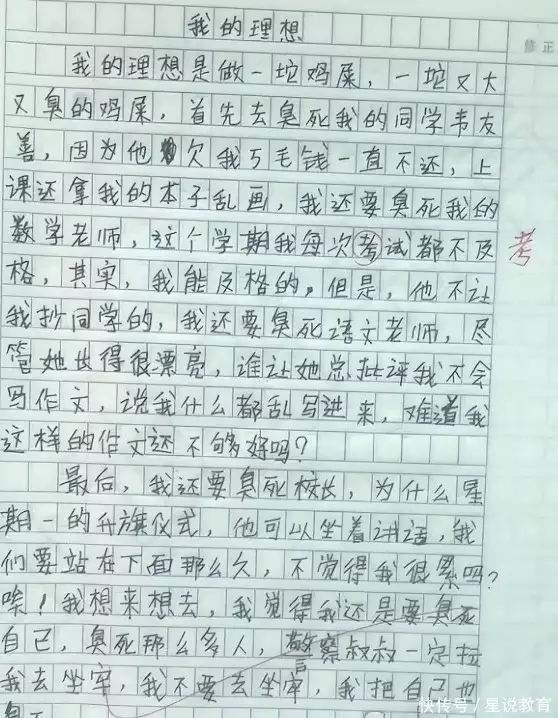 我的理想
修正
我的理想是做一坨鸡屎，一坨又大
又臭的鸡屎，首先去臭死我的同学韦友
善，因为他欠我5毛钱一直不还，上
课还拿我的本子乱画，我还要臭死我的
数学老师，这个学期我每次考试都不及
考
格，其实，我能及格的，但是，他不让
我抄同学的，我还要臭死语文老师，尽
管她长得很漂亮，谁让她总批评我不会
写作文，说我什么都乱写进来，难道我
这样的作文还不够好吗？
最后，我还要臭死校长，为什么星
期一的升旗仪式，他可以坐着讲话，我
们要站在下面那么久，不觉得我很累吗？
唉！我想来想去，我觉得我还是要臭死
自己，臭死那么多人，警察叔叔一定拉
我去坐牢，我不要去坐牢，我把自己也
快传号／星说教育